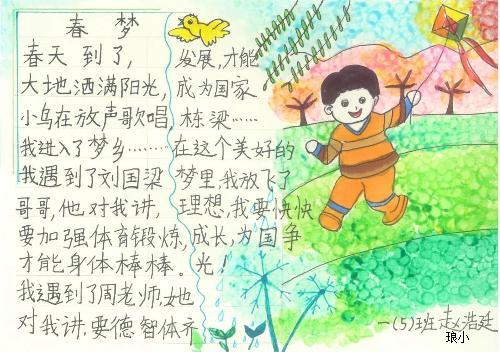 春梦
春天到了，
大地洒满阳光，
小鸟在放声歌唱，
我进入了梦乡………
我遇到了刘国梁
哥哥，他对我讲，
要加强体育锻炼，
才能身体棒棒。
我遇到了周老师，她
对我讲，要德智体齐
发展，才能
成为国家
栋梁……
在这个美好的
梦里，我放飞了
理想，我要快快
成长，为国争
光！
一(5)班赵浩廷
琅小